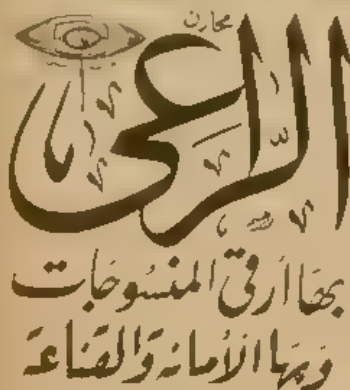 محارن
الرعى
بها أرقى المنسوجات
وبها الأمانه والقناعة